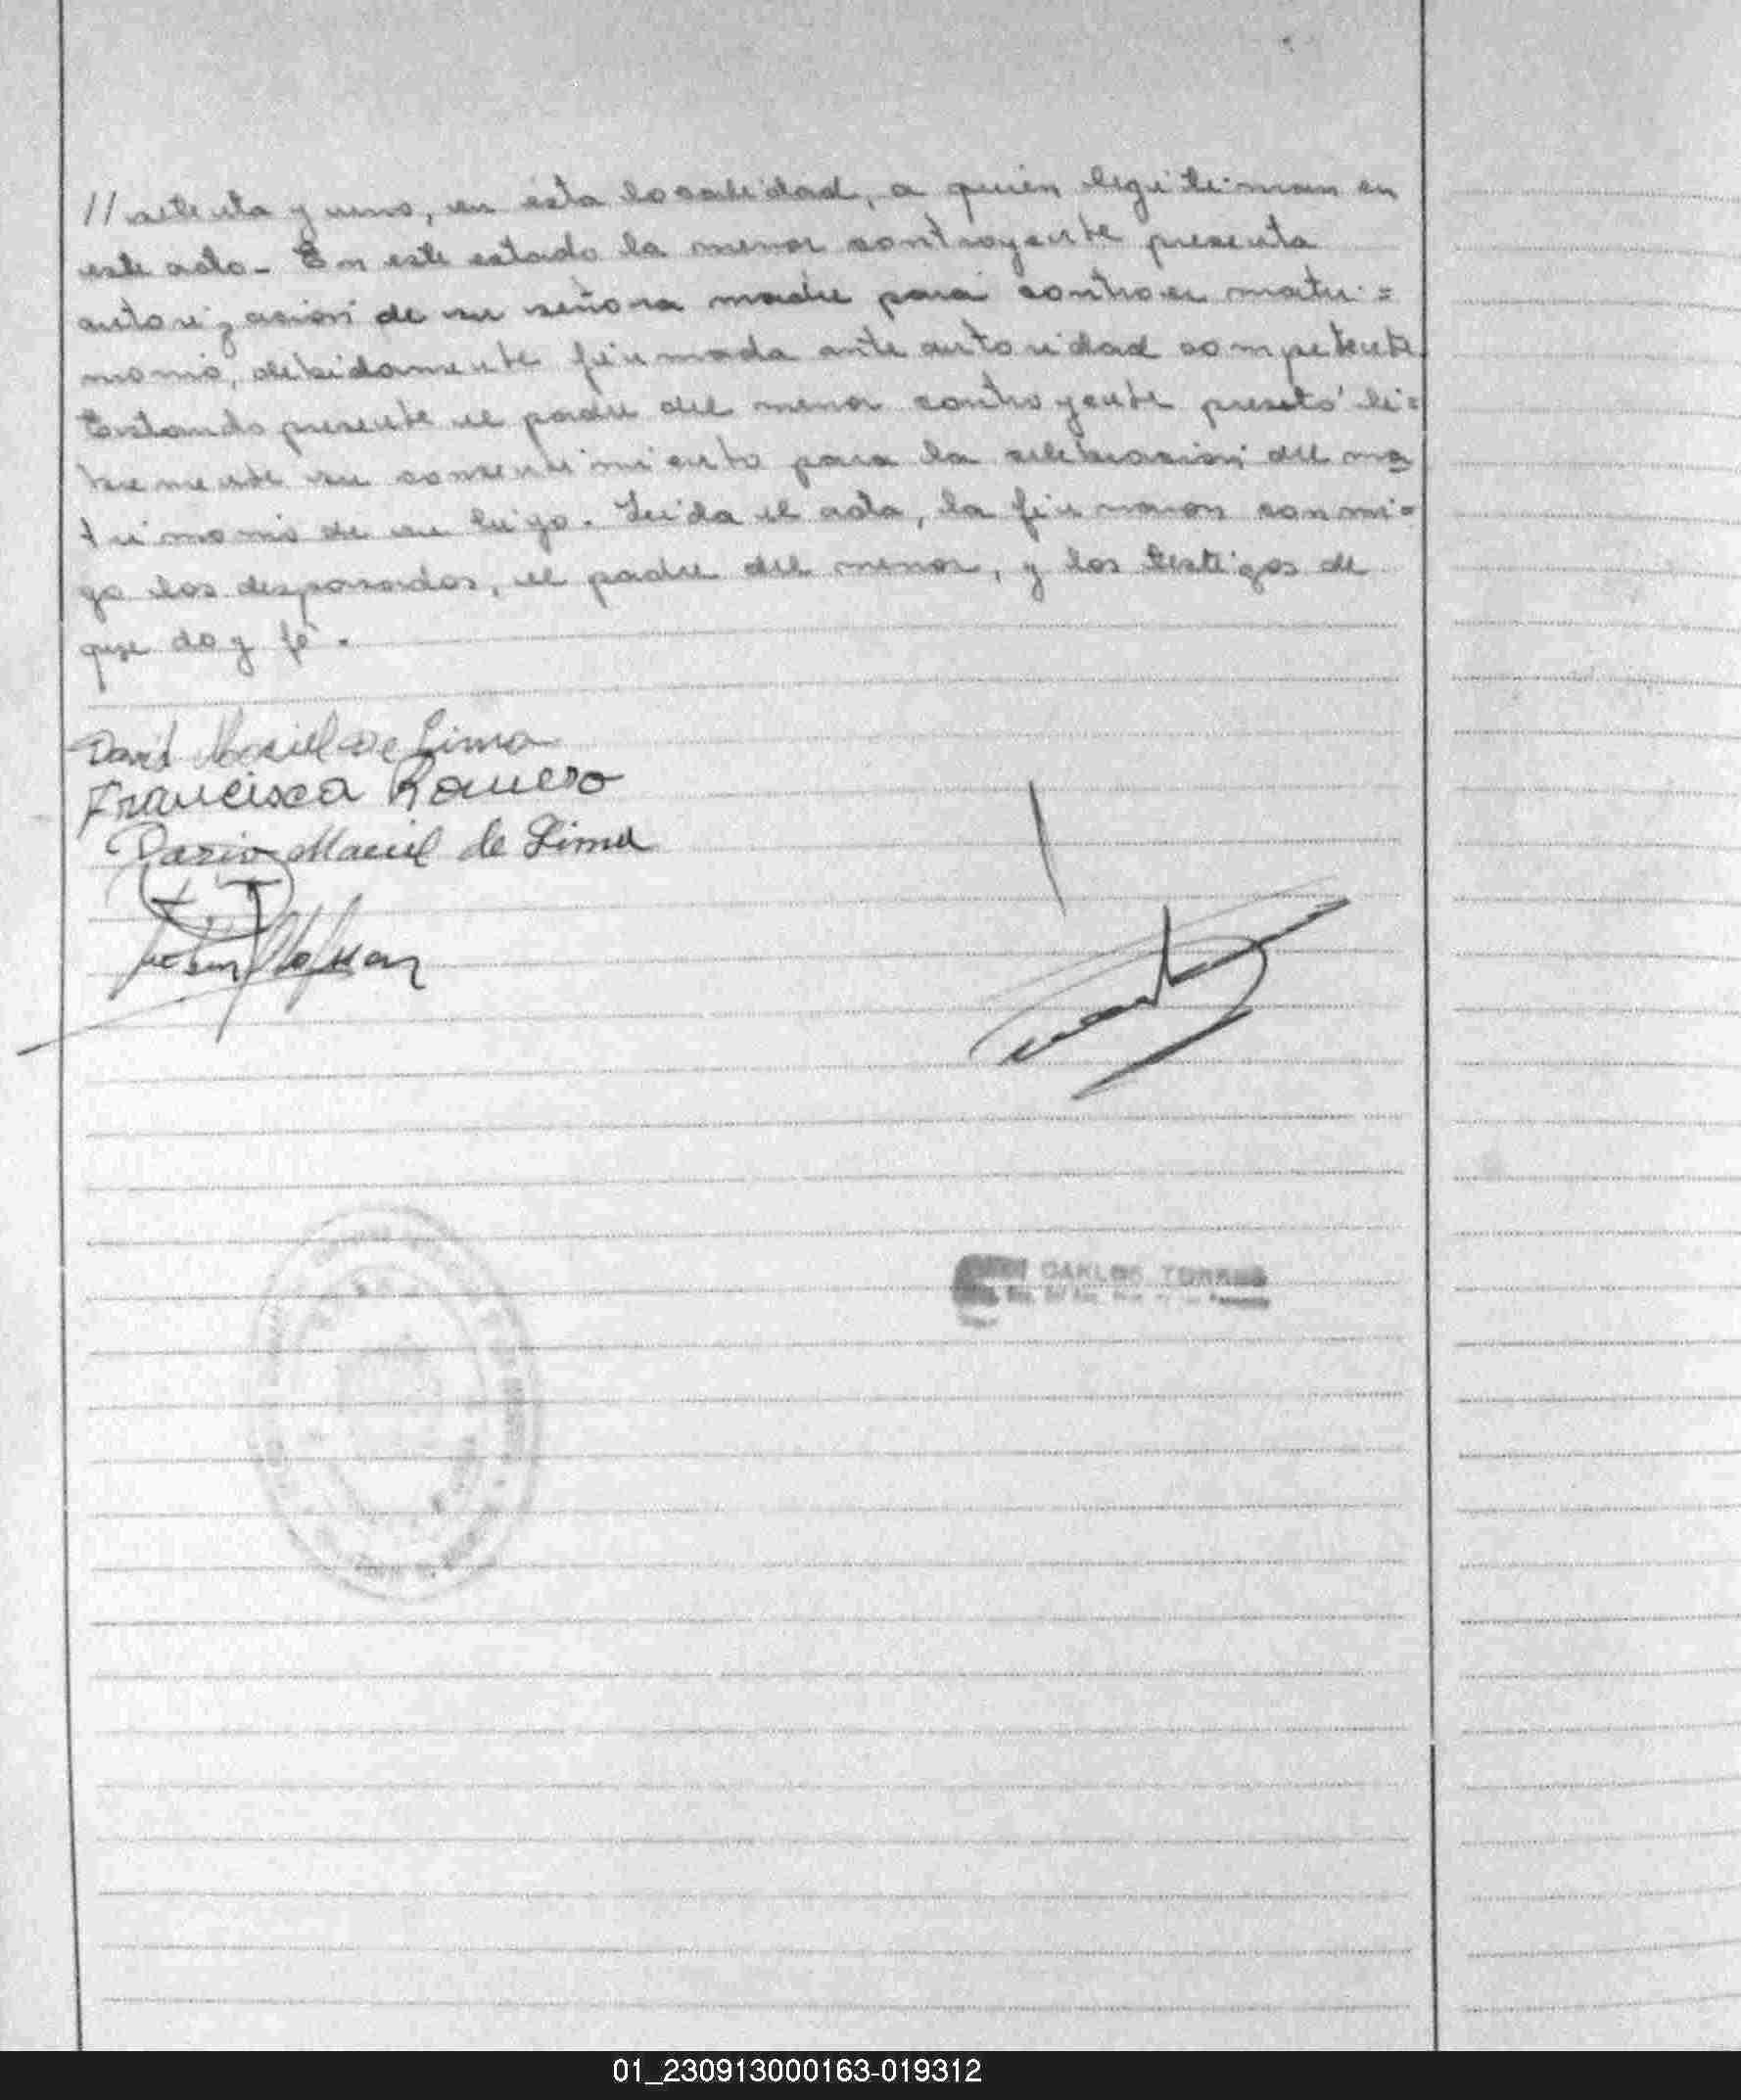 // setenta y uno, en esta localidad, a quien legitiman en
este acto - En este estado la menor contrayente presenta
autorización de su señora madre para contraer matri=
monio, debidamente firmada ante autoridad competente
Estando presente el padre del menor contrayente prestó li=
bremente su consentimiento para la celebración del ma
trimonio de su hijo. Leida el acta, la firmaron conmi=
go los desposados, el padre del menor, y los testigos de
que doy fé.
Maciel De Lima
Francisca Romero
Dario Maciel de Lima
CARLOS TORRES
01_230913000163-019312